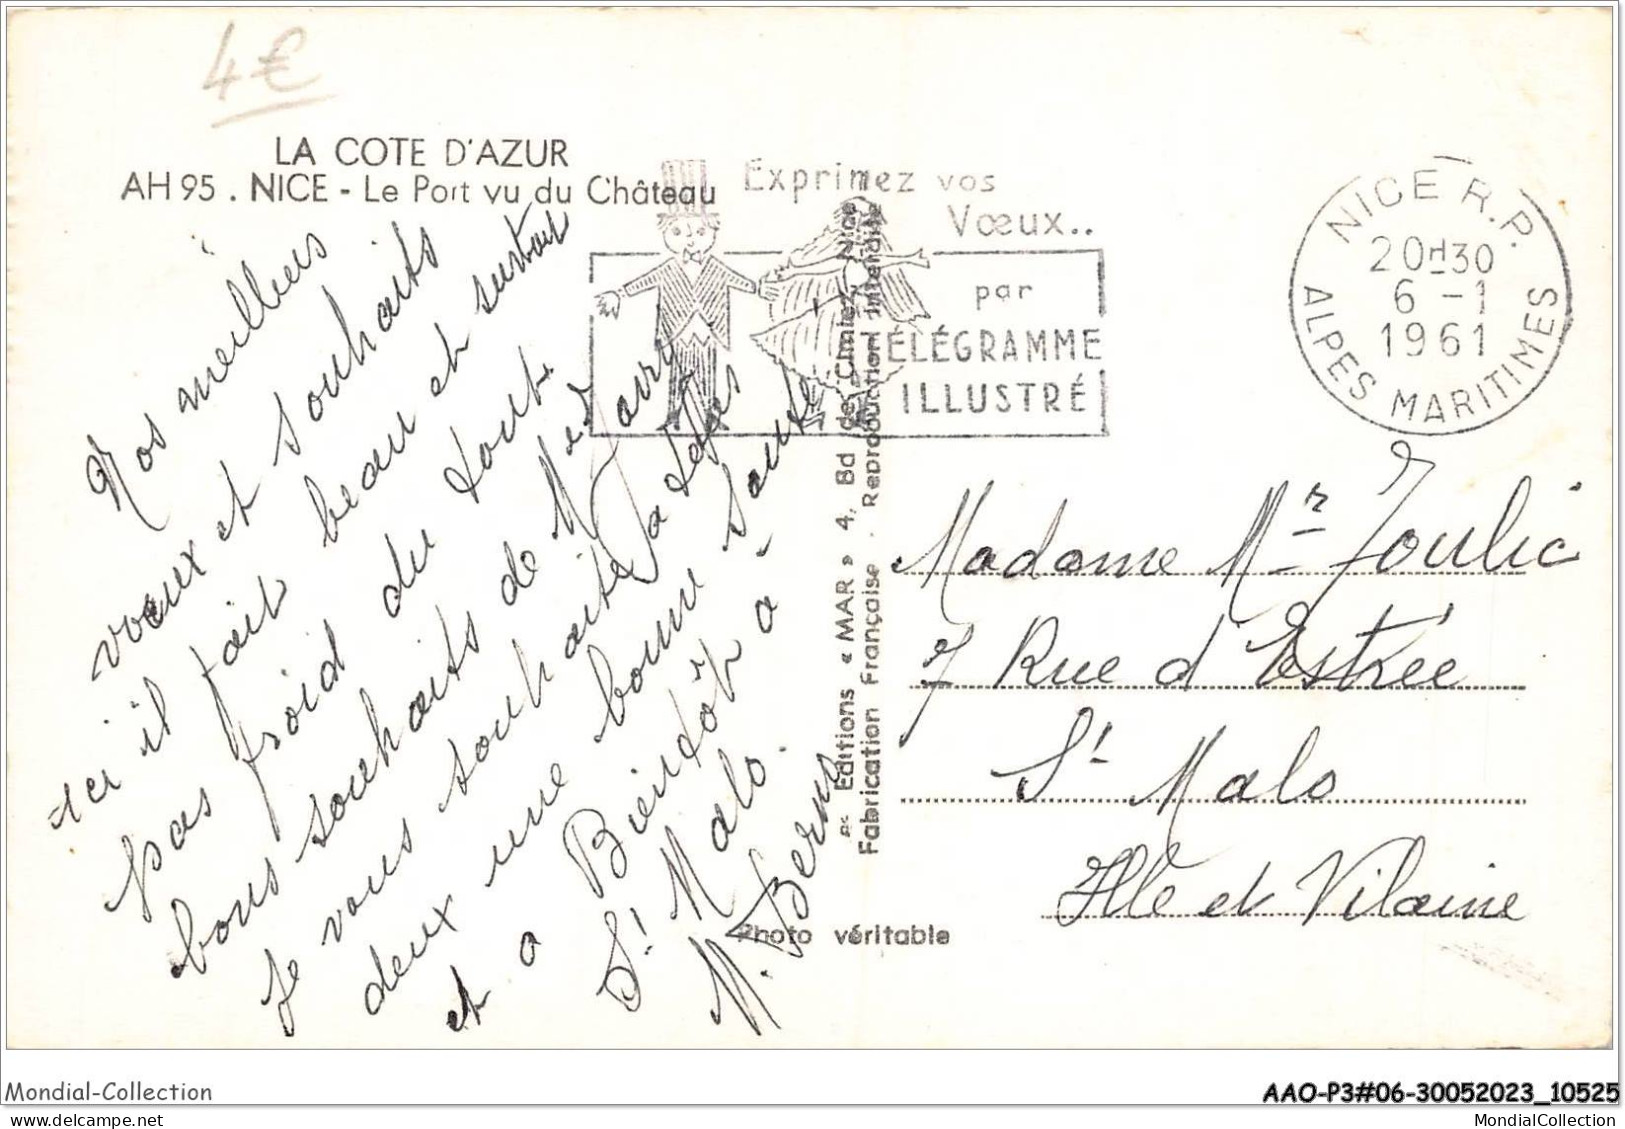 4€
LA COTE D'AZUR
AH 95 . NICE - Le Port vu du Château
Exprimez vos
Vœux..
par
TÉLÉGRAMME
ILLUSTRÉ
NICE R.P.
20H30
6 - 1
1961
ALPES MARITIMES
Nos meilleurs
voeux et souhaits
ici il fait beau et surtout
pas froid du tout.
bons souhaits de
Je vous souhaite a
deux une bonne Santé
et a Bientôt a
St Malo.
M. Berny
Editions « MAR » 4, Bd de Cimiez, Nice
Fabrication Française - Reproduction interdite
Photo véritable
Madame Mr Joulic
7 Rue d'Estrée
St Malo
Ille et Vilaine
Mondial-Collection
AAO-P3#06-30052023_10525
MondialCollection